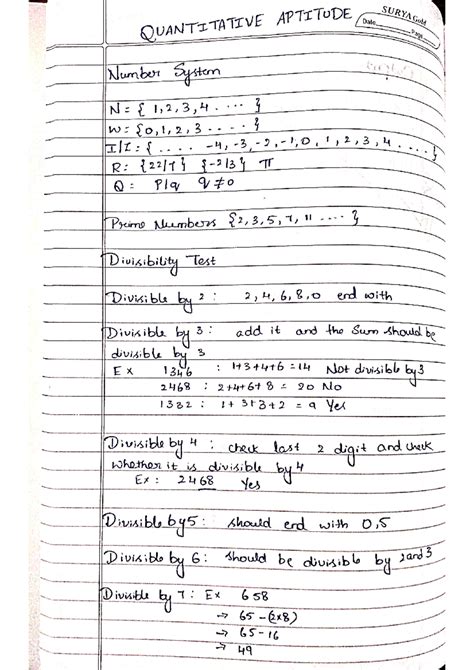 QUANTITATIVE APTITUDE
SURYA Gold
Date
Page
Number System
N = { 1, 2, 3, 4 .... }
W = {0, 1, 2, 3 .... }
I/I : { .... -4, -3, -2, -1, 0, 1, 2, 3, 4 .... }
R: {22/7} {-2/3} π
Q: P/q q≠0
Prime Numbers {2, 3, 5, 7, 11 .... }
Divisibility Test
Divisible by 2 : 2, 4, 6, 8, 0 end with
Divisible by 3 : add it and the sum should be
divisible by 3
Ex 1346 : 1+3+4+6 = 14 Not divisible by 3
2468 : 2+4+6+8 = 20 No
1332 : 1+3+3+2 = 9 Yes
Divisible by 4 : check last 2 digit and check
whether it is divisible by 4
Ex : 2468 Yes
Divisible by 5 : should end with 0, 5
Divisible by 6 : should be divisible by 2 and 3
Divisible by 7 : Ex 658
→ 65 - (2x8)
→ 65 - 16
→ 49